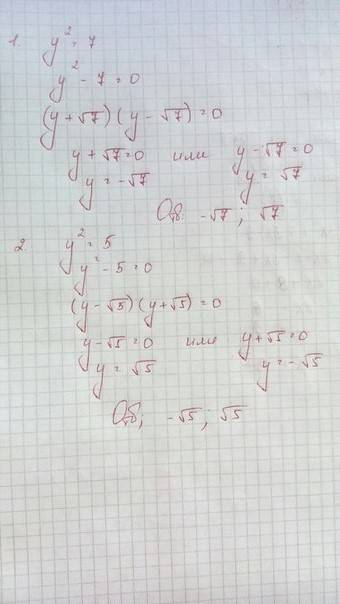 1. y² = 7
y² - 7 = 0
(y + √7)(y - √7) = 0
y + √7 = 0 или y - √7 = 0
y = -√7 y = √7
Отв: -√7; √7
2 y² = 5
y² - 5 = 0
(y - √5)(y + √5) = 0
y - √5 = 0 или y + √5 = 0
y = √5 y = -√5
Отв; -√5; √5